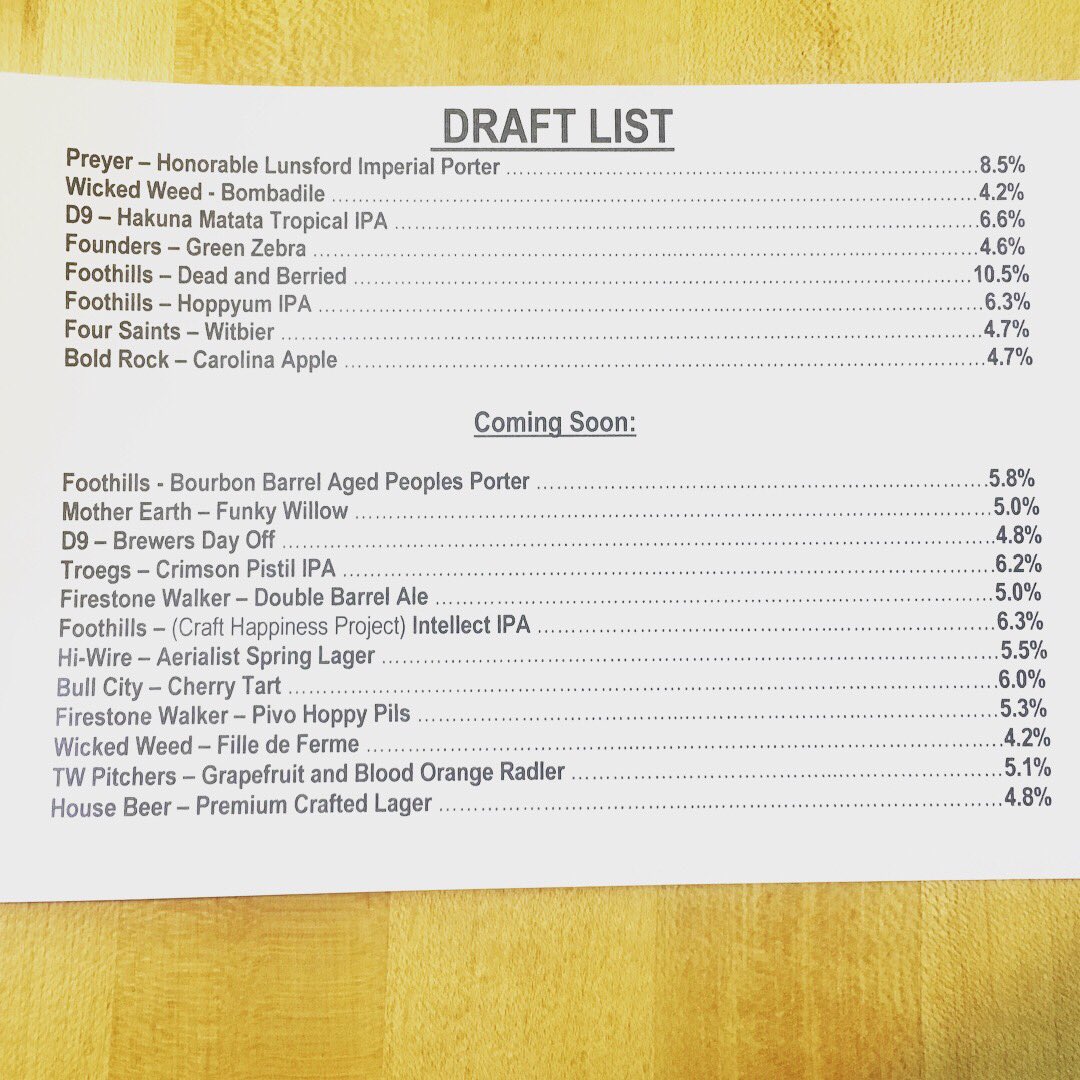 DRAFT LIST
Preyer – Honorable Lunsford Imperial Porter ........................................ 8.5%
Wicked Weed - Bombadile ........................................ 4.2%
D9 – Hakuna Matata Tropical IPA ........................................ 6.6%
Founders – Green Zebra ........................................ 4.6%
Foothills – Dead and Berried ........................................ 10.5%
Foothills – Hoppyum IPA ........................................ 6.3%
Four Saints – Witbier ........................................ 4.7%
Bold Rock – Carolina Apple ........................................ 4.7%
Coming Soon:
Foothills - Bourbon Barrel Aged Peoples Porter ........................................ 5.8%
Mother Earth – Funky Willow ........................................ 5.0%
D9 – Brewers Day Off ........................................ 4.8%
Troegs – Crimson Pistil IPA ........................................ 6.2%
Firestone Walker – Double Barrel Ale ........................................ 5.0%
Foothills – (Craft Happiness Project) Intellect IPA ........................................ 6.3%
Hi-Wire – Aerialist Spring Lager ........................................ 5.5%
Bull City – Cherry Tart ........................................ 6.0%
Firestone Walker – Pivo Hoppy Pils ........................................ 5.3%
Wicked Weed – Fille de Ferme ........................................ 4.2%
TW Pitchers – Grapefruit and Blood Orange Radler ........................................ 5.1%
House Beer – Premium Crafted Lager ........................................ 4.8%